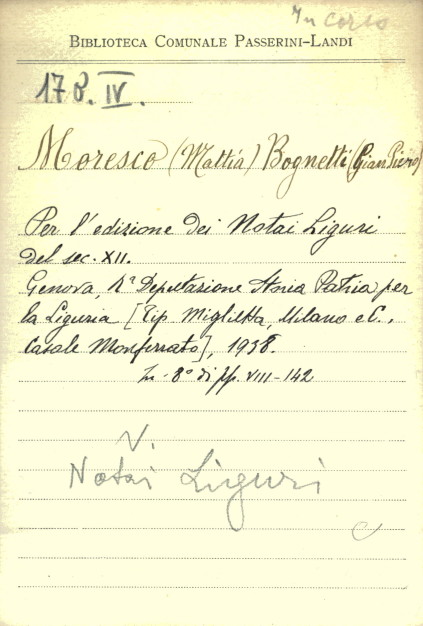 In corso
BIBLIOTECA COMUNALE PASSERINI-LANDI
178. IV.
Moresco (Mattia) Bognetti (Gian Piero)
Per l'edizione dei Notai Liguri
del sec. XII.
Genova, Rª Deputazione Storia Patria per
la Liguria [Tip. Miglietta, Milano e C.,
Casale Monferrato], 1938.
In-8° di pp. VIII-142
V.
Notai Liguri
C